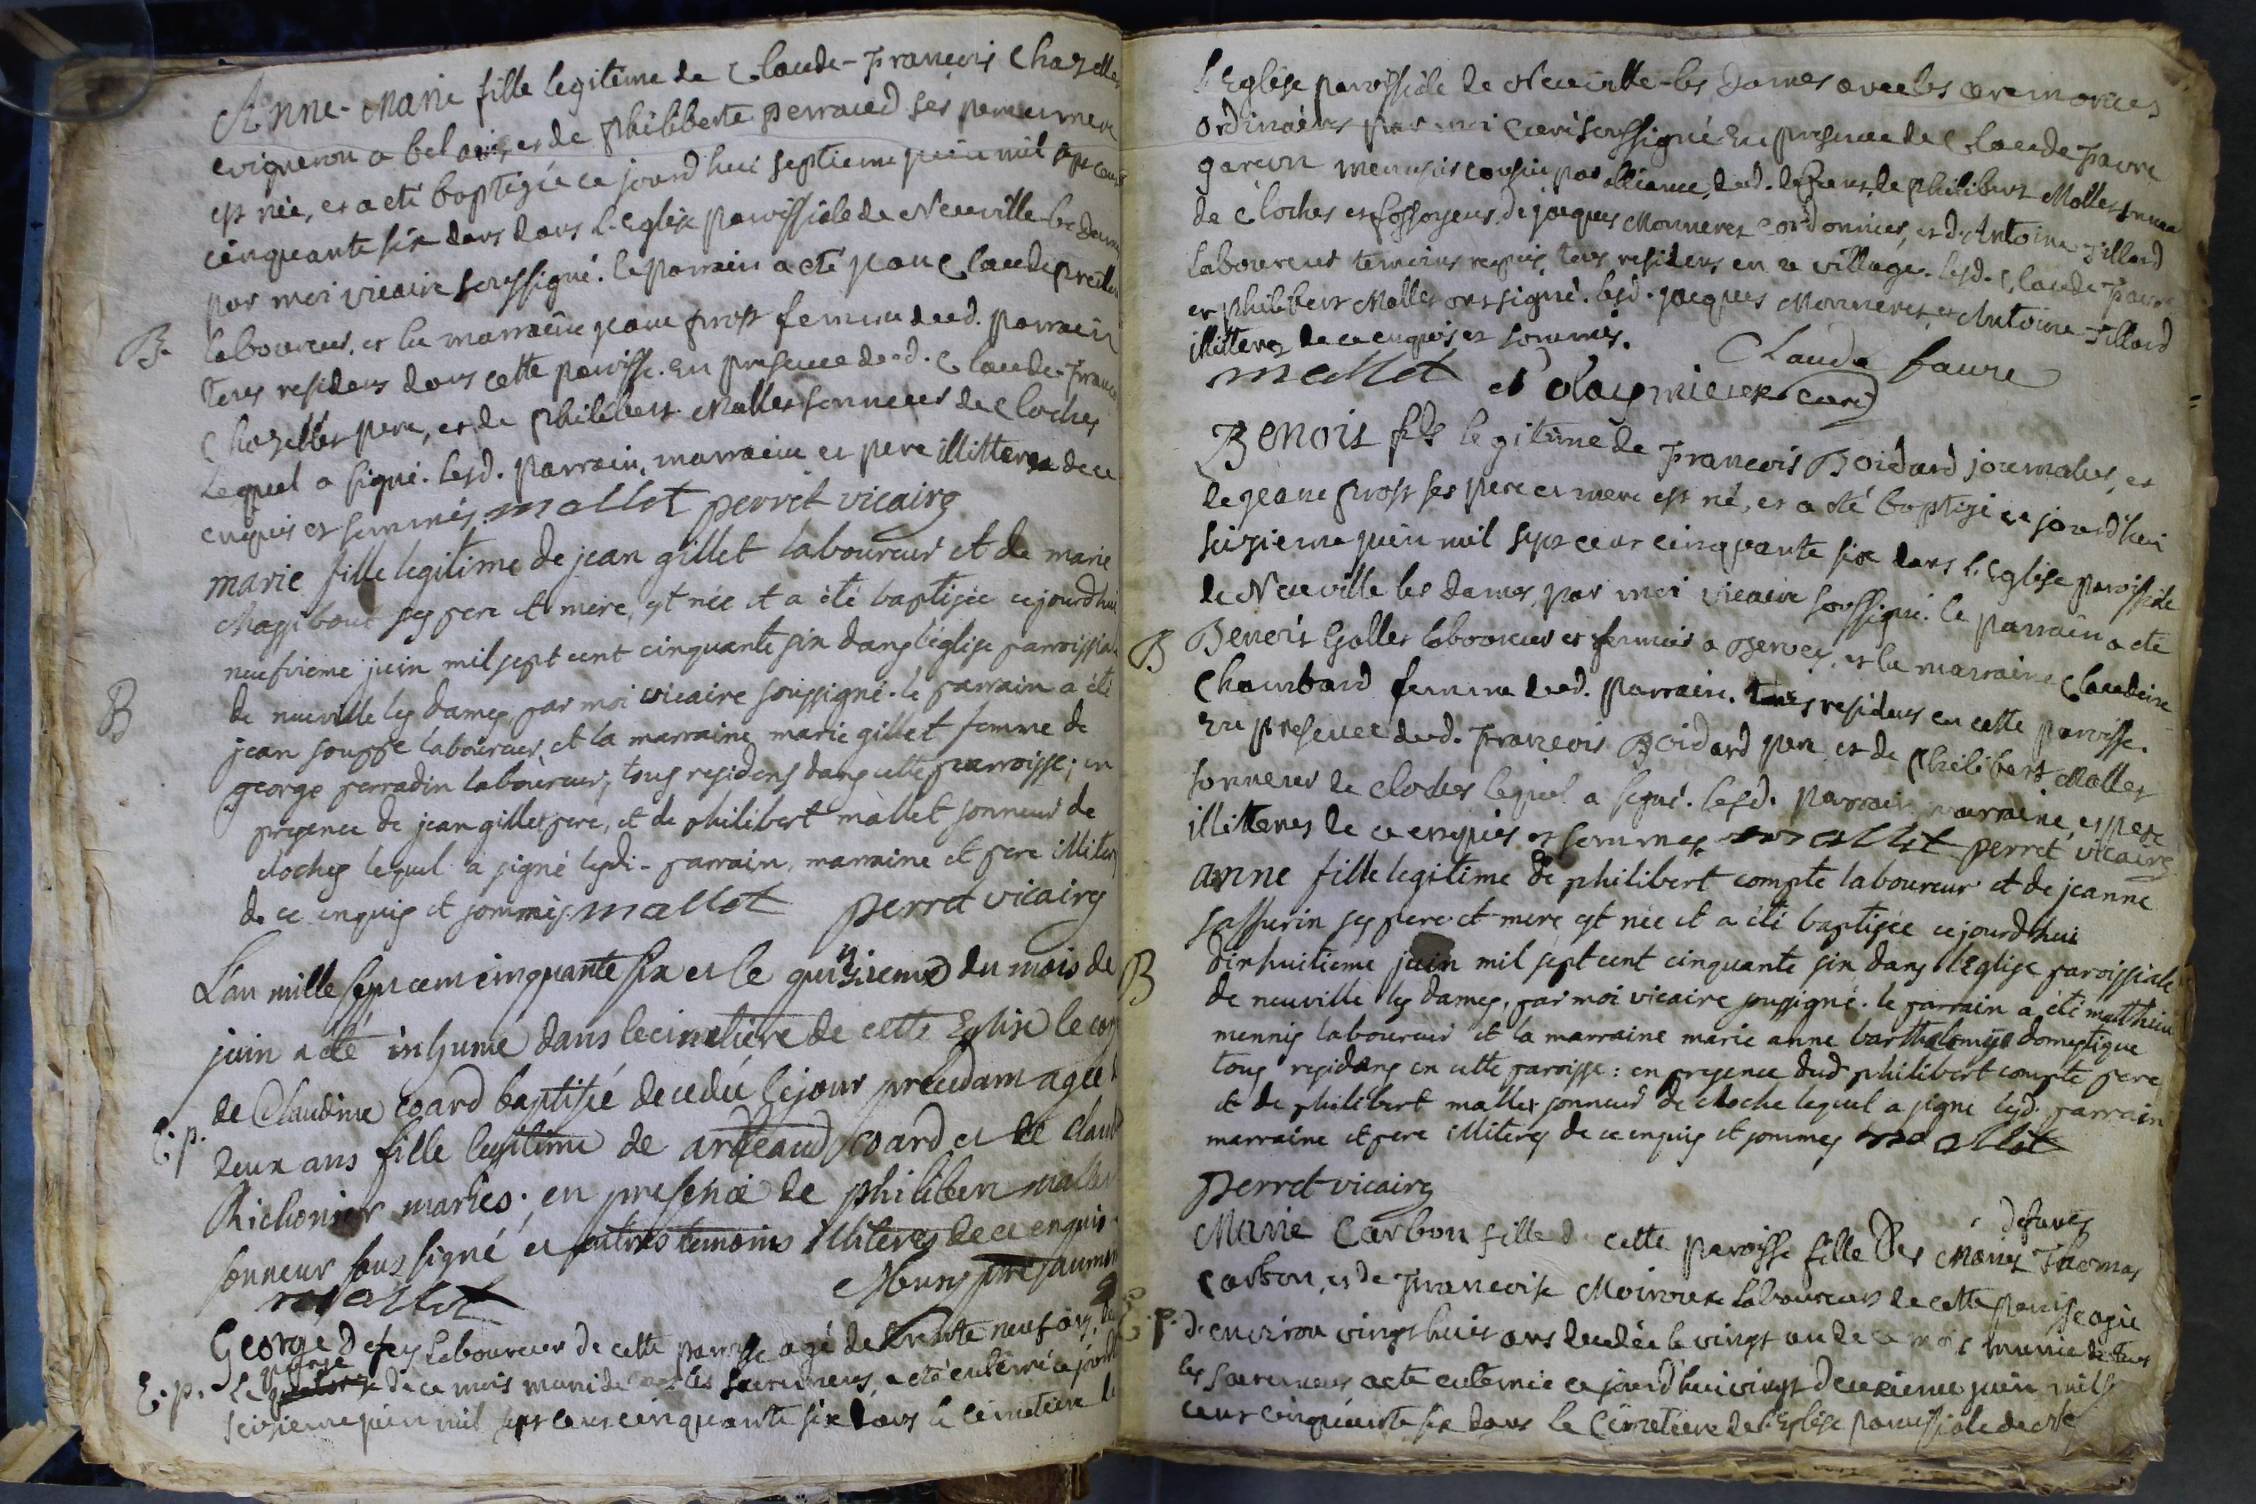 Anne-Marie fille legitime de Claude-François Chazelles
vigneron a bel air, et de philiberte perraud ses pere et mere
est née, et a eté baptizée ce jourd'hui septieme juin mil sept cent
cinquante six dans l'Eglise paroissiale de Neuville les dames
par moi vicaire soussigné. le parrain a eté jean Claude
B. laboureur, et la marraine jeane prost femme dud. parrain
tous residens dans cette paroisse. En presence dud. Claude-Franc
Chazelles pere, et de philibert Mallet sonneur de cloches
lequel a signé. lesd. parrain, marraine et pere illitteres de ce
enquis et sommés. mallet perret vicaire
marie fille legitime de jean gillet laboureur et de marie
Massibout ses pere et mere, est née et a été baptisée cejourdhui
neufvieme juin mil sept cent cinquante six dans l'église parroissiale
B de neuville les dames, par moi vicaire soussigné. le parrain a été
jean laboureur, et la marraine marie gillet femme de
george perradin laboureur, tous residens dans cette parroisse; en
presence de jean gillet pere, et de philibert mallet sonneur de
cloches lequel a signé lesdi- parrain, marraine et pere illiteres
de ce enquis et sommés. mallet perret vicaire
L'an mille sept cent cinquante six et le quinzieme du mois de
juin a été inhumé dans le cimetiere de cette Eglise le corps
de Claudine coard baptisée decedée le jour precedam agée
E. p. deux ans fille legitime de artheaud coard et de claud
Richonier mariés; en presence de philibert mallet
sonneur sous signé et autres temoins illiteres de ce enquis
mallet
George defey laboureur de cette paroisse agé de trente neuf ans,
quinze
E. p. Le de ce mois muni de tous les sacremens, a eté enterré ce jourdh
seizieme juin mil sept cent cinquante six dans le cimetiere de
l'Eglise paroissiale de Neuville-les Dames avec les ceremonies
ordinaires par moi Curé soussigné En presence de Claude Favre
garçon menusier cousin par alliance, dud. defunt, de philibert Mallet sonneur
de cloches et fossoyeur, de jacques Monneret cordonnier, et d'Antoine Tillard
laboureur temoins requis, tous residens en ce village. lesd. Claude Favre
et philibert Mallet ont signé. lesd. jacques Monneret et Antoine Tillard
illitteres de ce enquis et sommés. Claude faure
mallet curé
Benoit fils legitime de François Boidard journalier, et
de jeane prost ses pere et mere est né, et a eté baptizé ce jourd'hui
seizieme juin mil sept cent cinquante six dans l'Eglise paroissiale
de Neuville les dames, par moi vicaire soussigné. le parrain a eté
B Benoit Gallet laboureur et fermier a et la marraine Claudine
Chambard femme dud. parrain. tous residens en cette paroisse.
En presence dud. François Boidard pere et de philibert Mallet
sonneur de cloches lequel a signé. lesd. parrain marraine, et pere
illitteres de ce enquis et sommes mallet perret vicaire
anne fille legitime de philibert compte laboureur et de jeanne
saffurin ses pere et mere est née et a été baptisée cejourdhui
B dixhuitieme juin mil sept cent cinquante six dans l'Eglise paroissiale
de neuville les dames, par moi vicaire soussigné. le parrain a été matthieu
mennis laboureur et la marraine marie anne barthelemye domestique
tous residens en cette paroisse: en presence dud philibert compte pere
et de philibert mallet sonneur de cloche lequel a signé lesd. parrain
marraine et pere illiteres de ce enquis et sommes mallet
perret vicaire
defunts
Marie Carbon fille d cette paroisse fille des Mariés Thomas
Carbon, et de Françoise laboureurs de cette paroisse agée
E. p. d'environ vingt huit ans decedée le vingt un de ce mois munie de tous
les sacremens a eté enterrée ce jourd'hui vingt deuxieme juin mil
cent cinquante six dans le Cimetiere de l'Eglise paroissiale de